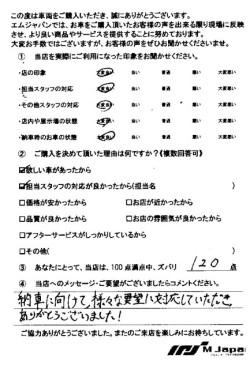 この度は車両をご購入いただき、誠にありがとうございます。
エムジャパンでは、お車をご購入頂いたお客様の声を出来る限り現場に反映
させ、より良い商品やサービスを提供することに努めております。
大変お手数ではございますが、お客様の声をぜひお聞かせくださいませ。
① 当店を実際にご利用になった印象をお聞かせください。
・店の印象 大変良い 良い 普通 悪い 大変悪い
・担当スタッフの対応 大変良い 良い 普通 悪い 大変悪い
・その他スタッフの対応 大変良い 良い 普通 悪い 大変悪い
・店内や展示場の状態 大変良い 良い 普通 悪い 大変悪い
・納車時のお車の状態 大変良い 良い 普通 悪い 大変悪い
② ご購入を決めて頂いた理由は何ですか?《複数回答可》
☑欲しい車があったから
☑担当スタッフの対応が良かったから(担当名 )
□価格が安かったから □お店が近かったから
□品質が良かったから □お店の雰囲気が良かったから
□アフターサービスがしっかりしているから
□その他( )
③ あなたにとって、当店は、100点満点中、ズバリ 120 点
④ 当店へのメッセージ・ご要望がございましたらコメントください。
納車に向けて、様々な要望に対応していただき
ありがとうございました!
ご協力ありがとうございました。またのご来店を楽しみにお待ちしています。
M Japan